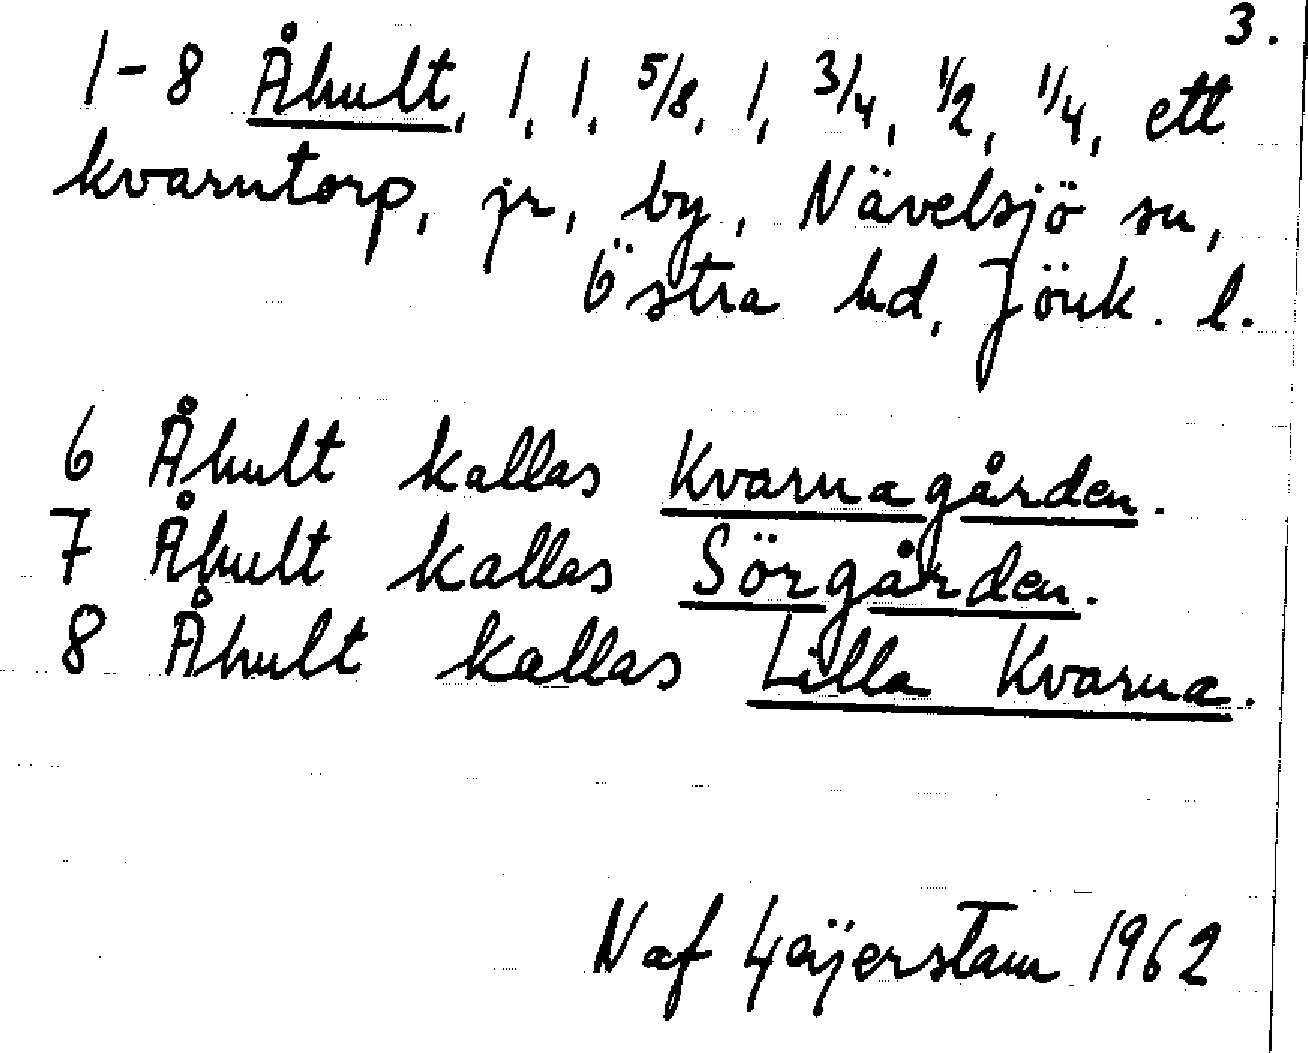 3.
1-8 Åhult, 1, 1, 5/8, 1, 3/4, 1/2, 1/4, ett
kvarntorp, jr, by, Nävelsjö sn,
Östra hd, Jönk. l.
6 Åhult kallas Kvarnagården.
7 Åhult kallas Sörgården.
8 Åhult kallas Lilla Kvarna.
N af Geijerstam 1962